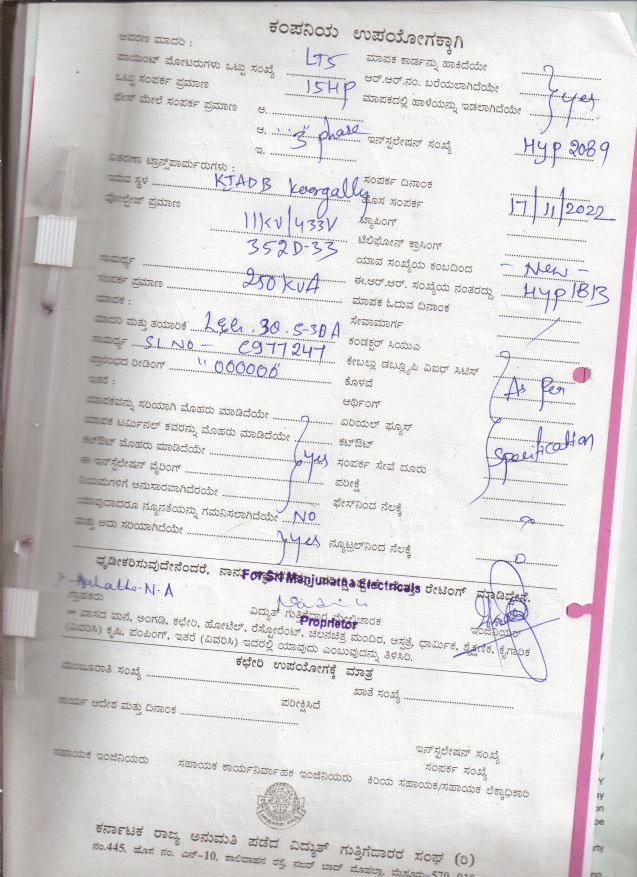 ಕಂಪನಿಯ ಉಪಯೋಗಕ್ಕಾಗಿ
ಆವರಣ ಮಾದರಿ :
ಪಾಯಿಂಟ್ ಮೋಟರುಗಳು ಒಟ್ಟು ಸಂಖ್ಯೆ LT5 ಮಾಪಕ ಕಾರ್ಡನ್ನು ಹಾಕಿದೆಯೇ
ಒಟ್ಟು ಸಂಪರ್ಕ ಪ್ರಮಾಣ 15HP ಆರ್.ಆರ್.ನಂ. ಬರೆಯಲಾಗಿದೆಯೇ yes
ಫೇಸ್ ಮೇಲೆ ಸಂಪರ್ಕ ಪ್ರಮಾಣ ಅ. ಮಾಪಕದಲ್ಲಿ ಹಾಳೆಯನ್ನು ಇಡಲಾಗಿದೆಯೇ
ಆ. "3" phase
ಇ. ಇನ್‌ಸ್ಟಲೇಷನ್ ಸಂಖ್ಯೆ HYP 2089
ವಿತರಣಾ ಟ್ರಾನ್ಸ್‌ಫಾರ್ಮರುಗಳು :
ಇರುವ ಸ್ಥಳ KIADB Koorgally ಸಂಪರ್ಕ ದಿನಾಂಕ
ವೋಲ್ಟೇಜ್ ಪ್ರಮಾಣ 11KV/433V ಹೊಸ ಸಂಪರ್ಕ 17/11/2022
ಟ್ಯಾಪಿಂಗ್
352D-33 ಟೆಲಿಫೋನ್ ಕ್ರಾಸಿಂಗ್
ಸಾಮರ್ಥ್ಯ ಯಾವ ಸಂಖ್ಯೆಯ ಕಂಬದಿಂದ - New -
ಸಂಪರ್ಕ ಪ್ರಮಾಣ 250 KVA ಈ.ಆರ್.ಆರ್. ಸಂಖ್ಯೆಯ ನಂತರದ್ದು HYP 1813
ಮಾಪಕ : ಮಾಪಕ ಓದುವ ದಿನಾಂಕ
ಮಾದರಿ ಮತ್ತು ತಯಾರಿಕೆ L&G. 30. 5-30A ಸೇವಾಮಾರ್ಗ
ಸಾಮರ್ಥ್ಯ S.L NO - C977247 ಕಂಡಕ್ಟರ್ ಸಿಯುಎ
ಪ್ರಾರಂಭದ ರೀಡಿಂಗ್ "000000" ಕೇಬಲ್ಲು ಡಬ್ಲ್ಯೂಪಿ ಏಐರ್ ಸಿಟಿಸ್
ಇತರೆ : ಕೊಳವೆ As per
ಮಾಪಕವನ್ನು ಸರಿಯಾಗಿ ಮೊಹರು ಮಾಡಿದೆಯೇ ಅರ್ಥಿಂಗ್
ಮಾಪಕ ಟರ್ಮಿನಲ್ ಕವರನ್ನು ಮೊಹರು ಮಾಡಿದೆಯೇ ಏರಿಯಲ್ ಫ್ಯೂಸ್
ಕಟ್‌ಔಟ್ ಮೊಹರು ಮಾಡಿದೆಯೇ yes ಕಟ್‌ಔಟ್ Specification
ಈ ಇನ್‌ಸ್ಟಲೇಷನ್ ವೈರಿಂಗ್ ಸಂಪರ್ಕ ಸೇವೆ ದೂರು
ನಿಯಮಗಳಿಗೆ ಅನುಸಾರವಾಗಿದೆಯೇ ಪರೀಕ್ಷೆ
ಯಾವುದಾದರೂ ನ್ಯೂನತೆಯನ್ನು ಗಮನಿಸಲಾಗಿದೆಯೇ NO ಫೇಸ್‌ನಿಂದ ನೆಲಕ್ಕೆ
ಮತ್ತು ಅದು ಸರಿಯಾಗಿದೆಯೇ yes ನ್ಯೂಟ್ರಲ್‌ನಿಂದ ನೆಲಕ್ಕೆ
ಧೃಡೀಕರಿಸುವುದೇನೆಂದರೆ, ನಾನು ರೇಟಿಂಗ್ ಮಾಡಿದ್ದೇನೆ.
For Sri Manjunatha Electricals
N.A
ಗ್ರಾಹಕರು ವಿದ್ಯುತ್ ಗುತ್ತಿಗೆದಾರ ಇಂಜಿನಿಯರ್
Proprietor
** ವಾಸದ ಮನೆ, ಅಂಗಡಿ, ಕಛೇರಿ, ಹೋಟೆಲ್, ರೆಸ್ಟೋರೆಂಟ್, ಚಲನಚಿತ್ರ ಮಂದಿರ, ಆಸ್ಪತ್ರೆ, ಧಾರ್ಮಿಕ, ಶೈಕ್ಷಣಿಕ, ಕೈಗಾರಿಕ
(ವಿವರಿಸಿ) ಕೃಷಿ, ಪಂಪಿಂಗ್, ಇತರೆ (ವಿವರಿಸಿ) ಇದರಲ್ಲಿ ಯಾವುದು ಎಂಬುವುದನ್ನು ತಿಳಿಸಿರಿ.
ಕಛೇರಿ ಉಪಯೋಗಕ್ಕೆ ಮಾತ್ರ
ಮಂಜೂರಾತಿ ಸಂಖ್ಯೆ ಖಾತೆ ಸಂಖ್ಯೆ
ಕಾರ್ಯ ಆದೇಶ ಮತ್ತು ದಿನಾಂಕ ಪರೀಕ್ಷಿಸಿದೆ
ಇನ್‌ಸ್ಟಲೇಷನ್ ಸಂಖ್ಯೆ
ಸಂಪರ್ಕ ಸಂಖ್ಯೆ
ಸಹಾಯಕ ಇಂಜಿನಿಯರು ಸಹಾಯಕ ಕಾರ್ಯನಿರ್ವಾಹಕ ಇಂಜಿನಿಯರು ಕಿರಿಯ ಸಹಾಯಕ/ಸಹಾಯಕ ಲೆಕ್ಕಾಧಿಕಾರಿ
ಕರ್ನಾಟಕ ರಾಜ್ಯ ಅನುಮತಿ ಪಡೆದ ವಿದ್ಯುತ್ ಗುತ್ತಿಗೆದಾರರ ಸಂಘ (ರಿ)
ನಂ.445, ಹೊಸ ನಂ. ಎನ್-10, ಕಾಲಿವಾಹನ ರಸ್ತೆ, ನಜರ್ ಬಾದ್ ಮೊಹಲ್ಲಾ, ಮೈಸೂರು-570 010